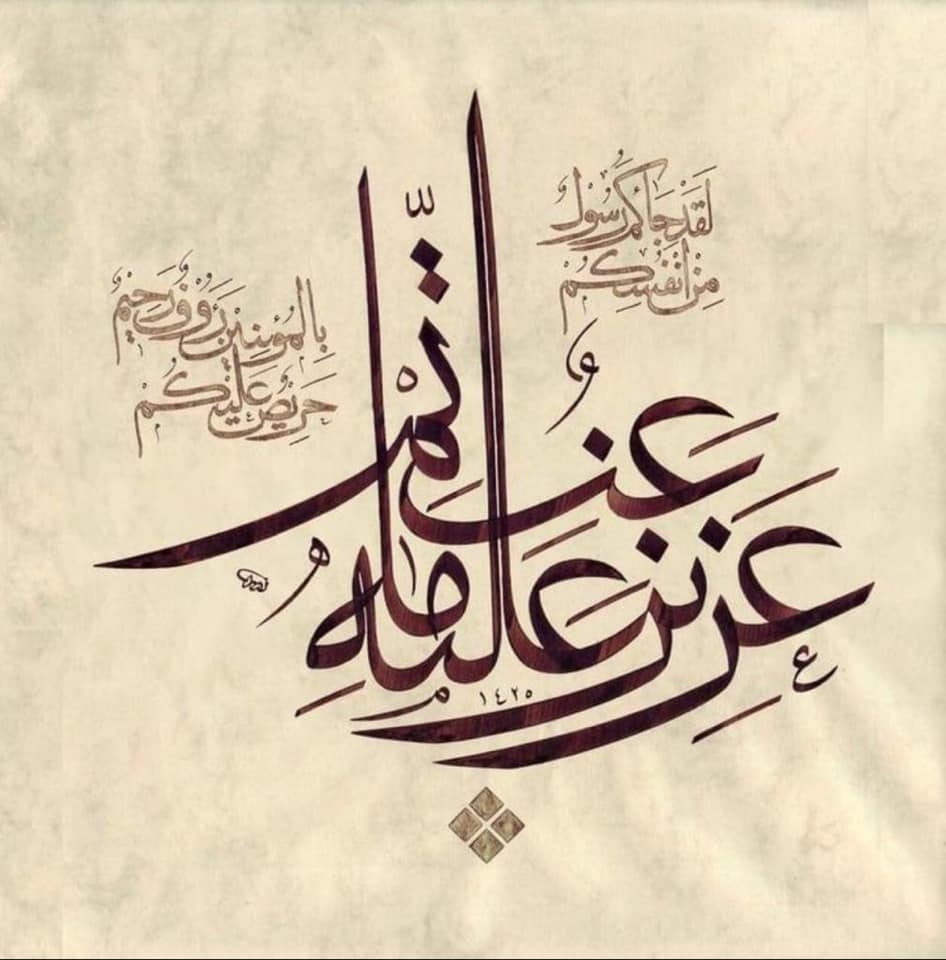 لَقَدْ جَاءَكُمْ رَسُولٌ
مِنْ أَنْفُسِكُمْ
عَزِيزٌ عَلَيْهِ مَا
عَنِتُّمْ
حَرِيصٌ عَلَيْكُمْ
بِالْمُؤْمِنِينَ رَءُوفٌ رَحِيمٌ
١٤٢٥